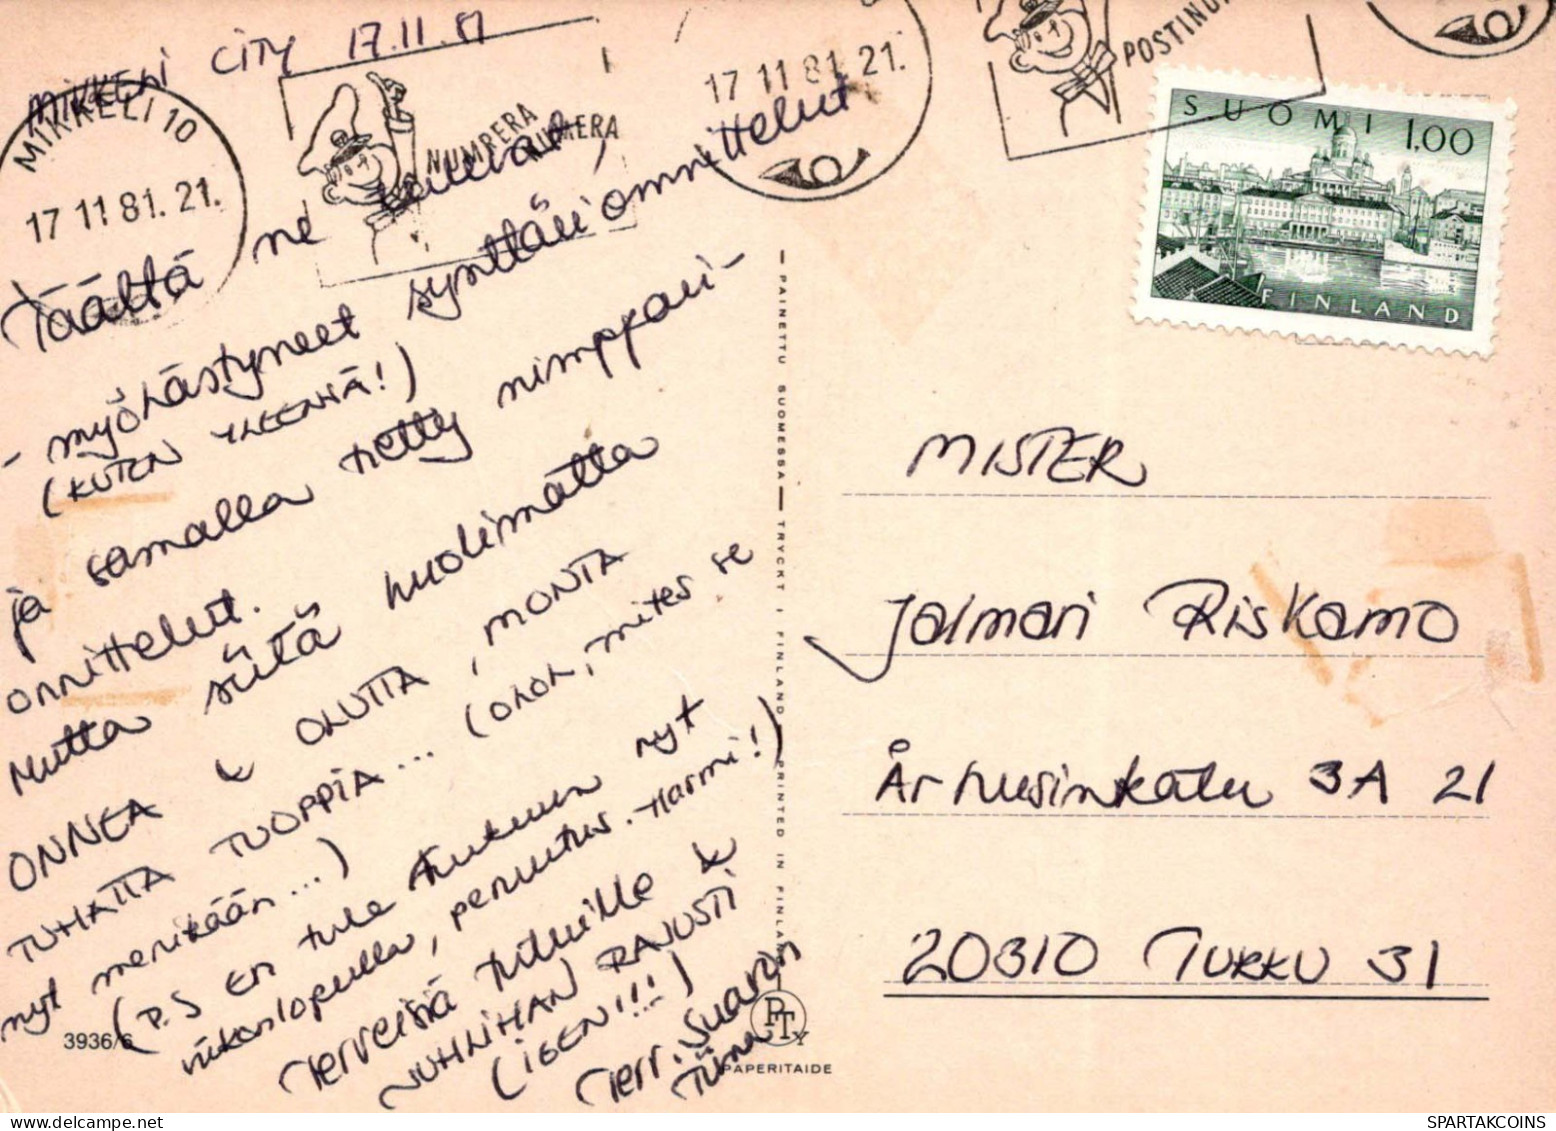 MIKKELI CITY 17.11.81
MIKKELI 10
17 11 81. 21.
NUMRERA
NUMERA
17 11 81 21.
POSTINU
SUOMI 1,00
FINLAND
Täältä ne tulevat,
- myöhästyneet synttäri onnittelut
(KUTEN YLEENSÄ!)
ja samalla tietty nimppari-
onnittelut.
Mutta siitä huolimatta
ONNEA & OLUTTA, MONTA
TUHATTA TUOPPIA... (OHOH, mites se
nyt menikään...)
(P.S En tule Turkuun nyt
viikonlopulla, peruutus. Harmi!)
Terveisiä tutuille &
JUHLIHAN RAJUSTI
(IGEN!!!)
Terv. Suarin
Tiina
3936/6
PAINETTU SUOMESSA — TRYCKT I FINLAND — PRINTED IN FINLAND
PTy
PAPERITAIDE
MISTER
Jalmari Riskamo
Århusinkatu 3A 21
20310 TURKU 31
SPARTAKCOINS
WWW.SPARTAKCOINS.COM